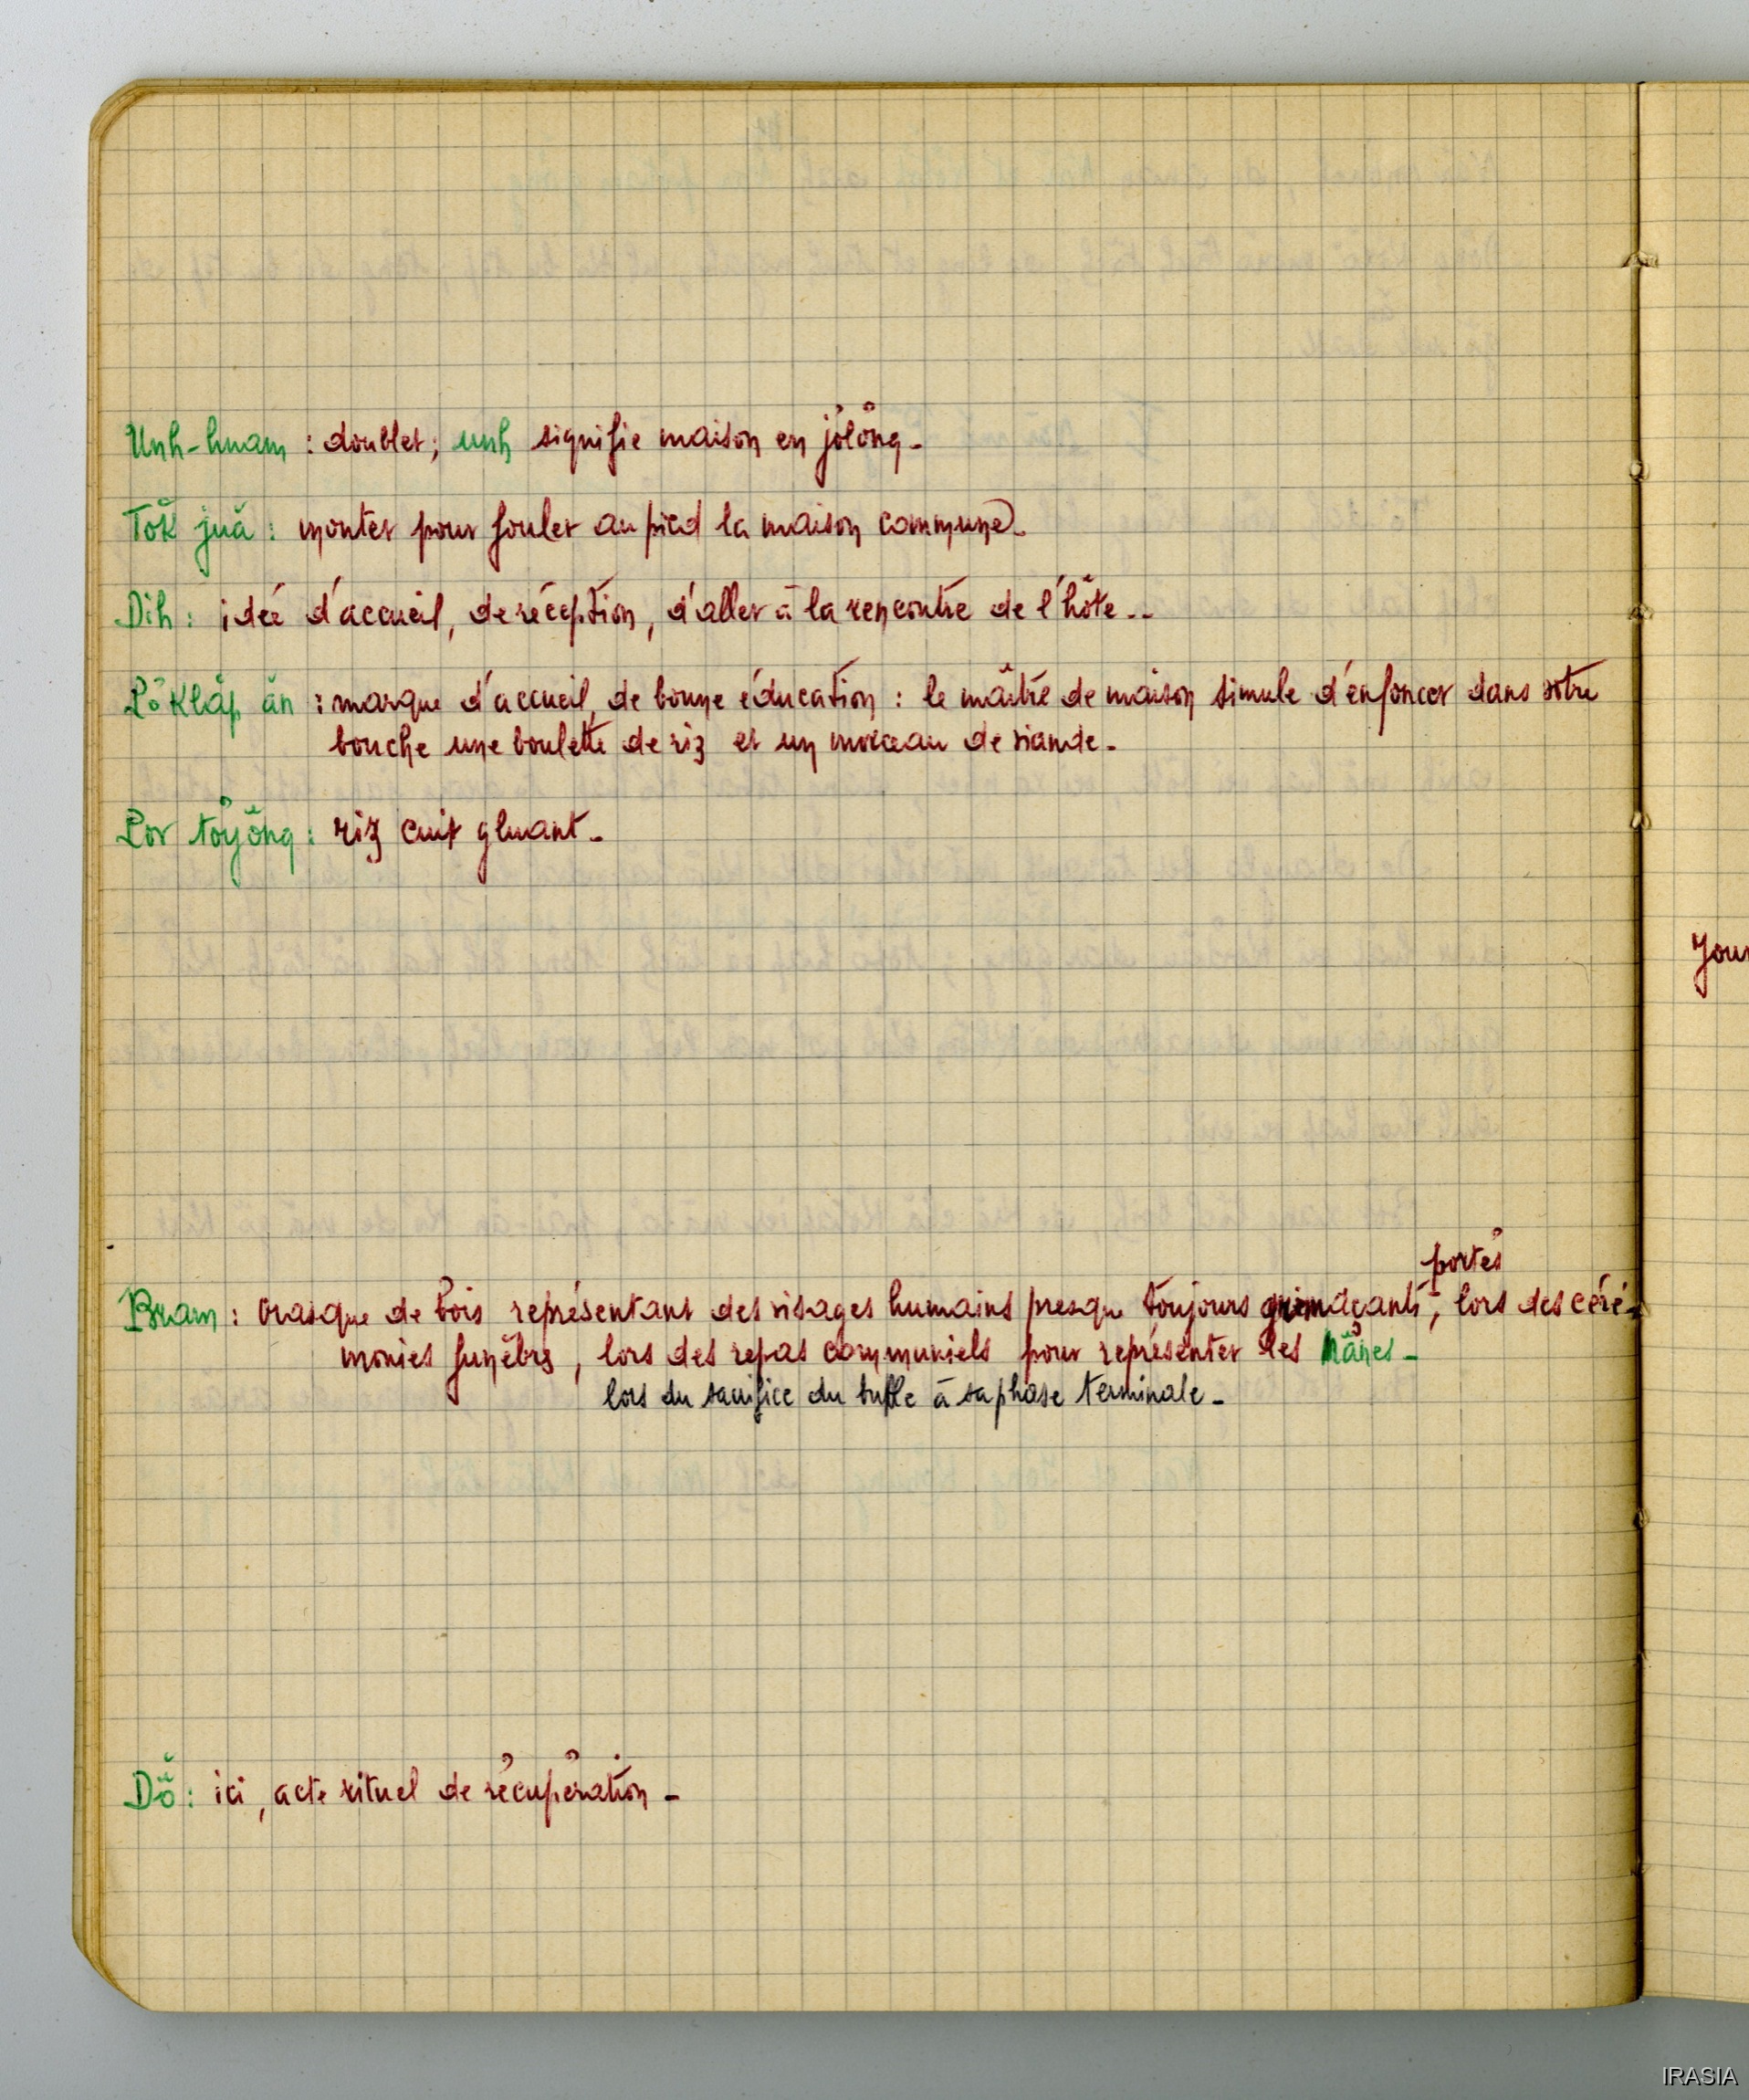 Unh-hnam : doublet; unh signifie maison en jölöng.
Tŏk juă : monter pour fouler au pied la maison commune.
Dih : idée d'accueil, de réception, d'aller à la rencontre de l'hôte..
Pŏklăp ăn : marque d'accueil, de bonne éducation : le maître de maison simule d'enfoncer dans votre
bouche une boulette de riz et un morceau de viande.
Por töyŏng : riz cuit gluant.
portés
Bram : masque de bois représentant des visages humains presque toujours grimaçants, lors des céré-
monies funèbres, lors des repas communiels pour représenter les Mânes.
lors du sacrifice du buffle à sa phase terminale.
Dŏ : ici, acte rituel de récupération.
Jour
IRASIA